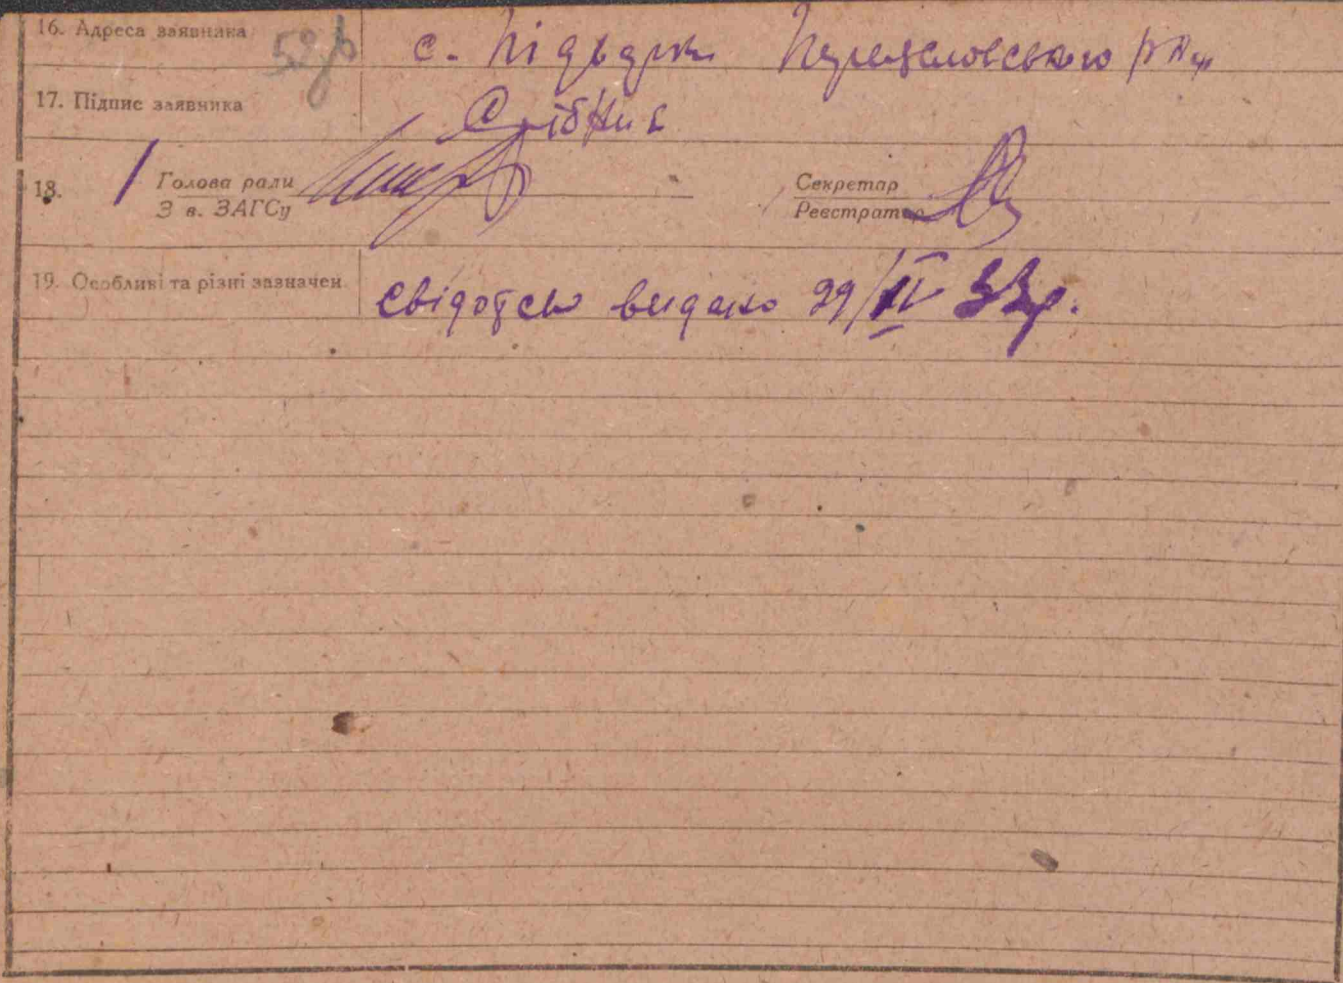 16. Адреса заявника с. Підварки Переяславського р-ну
17. Підпис заявника Срібний
18. Голова ради Секретар
З в. ЗАГСу Реєстратор
19. Особливі та різні зазначен. свідоцтво видано 29/II 33р.